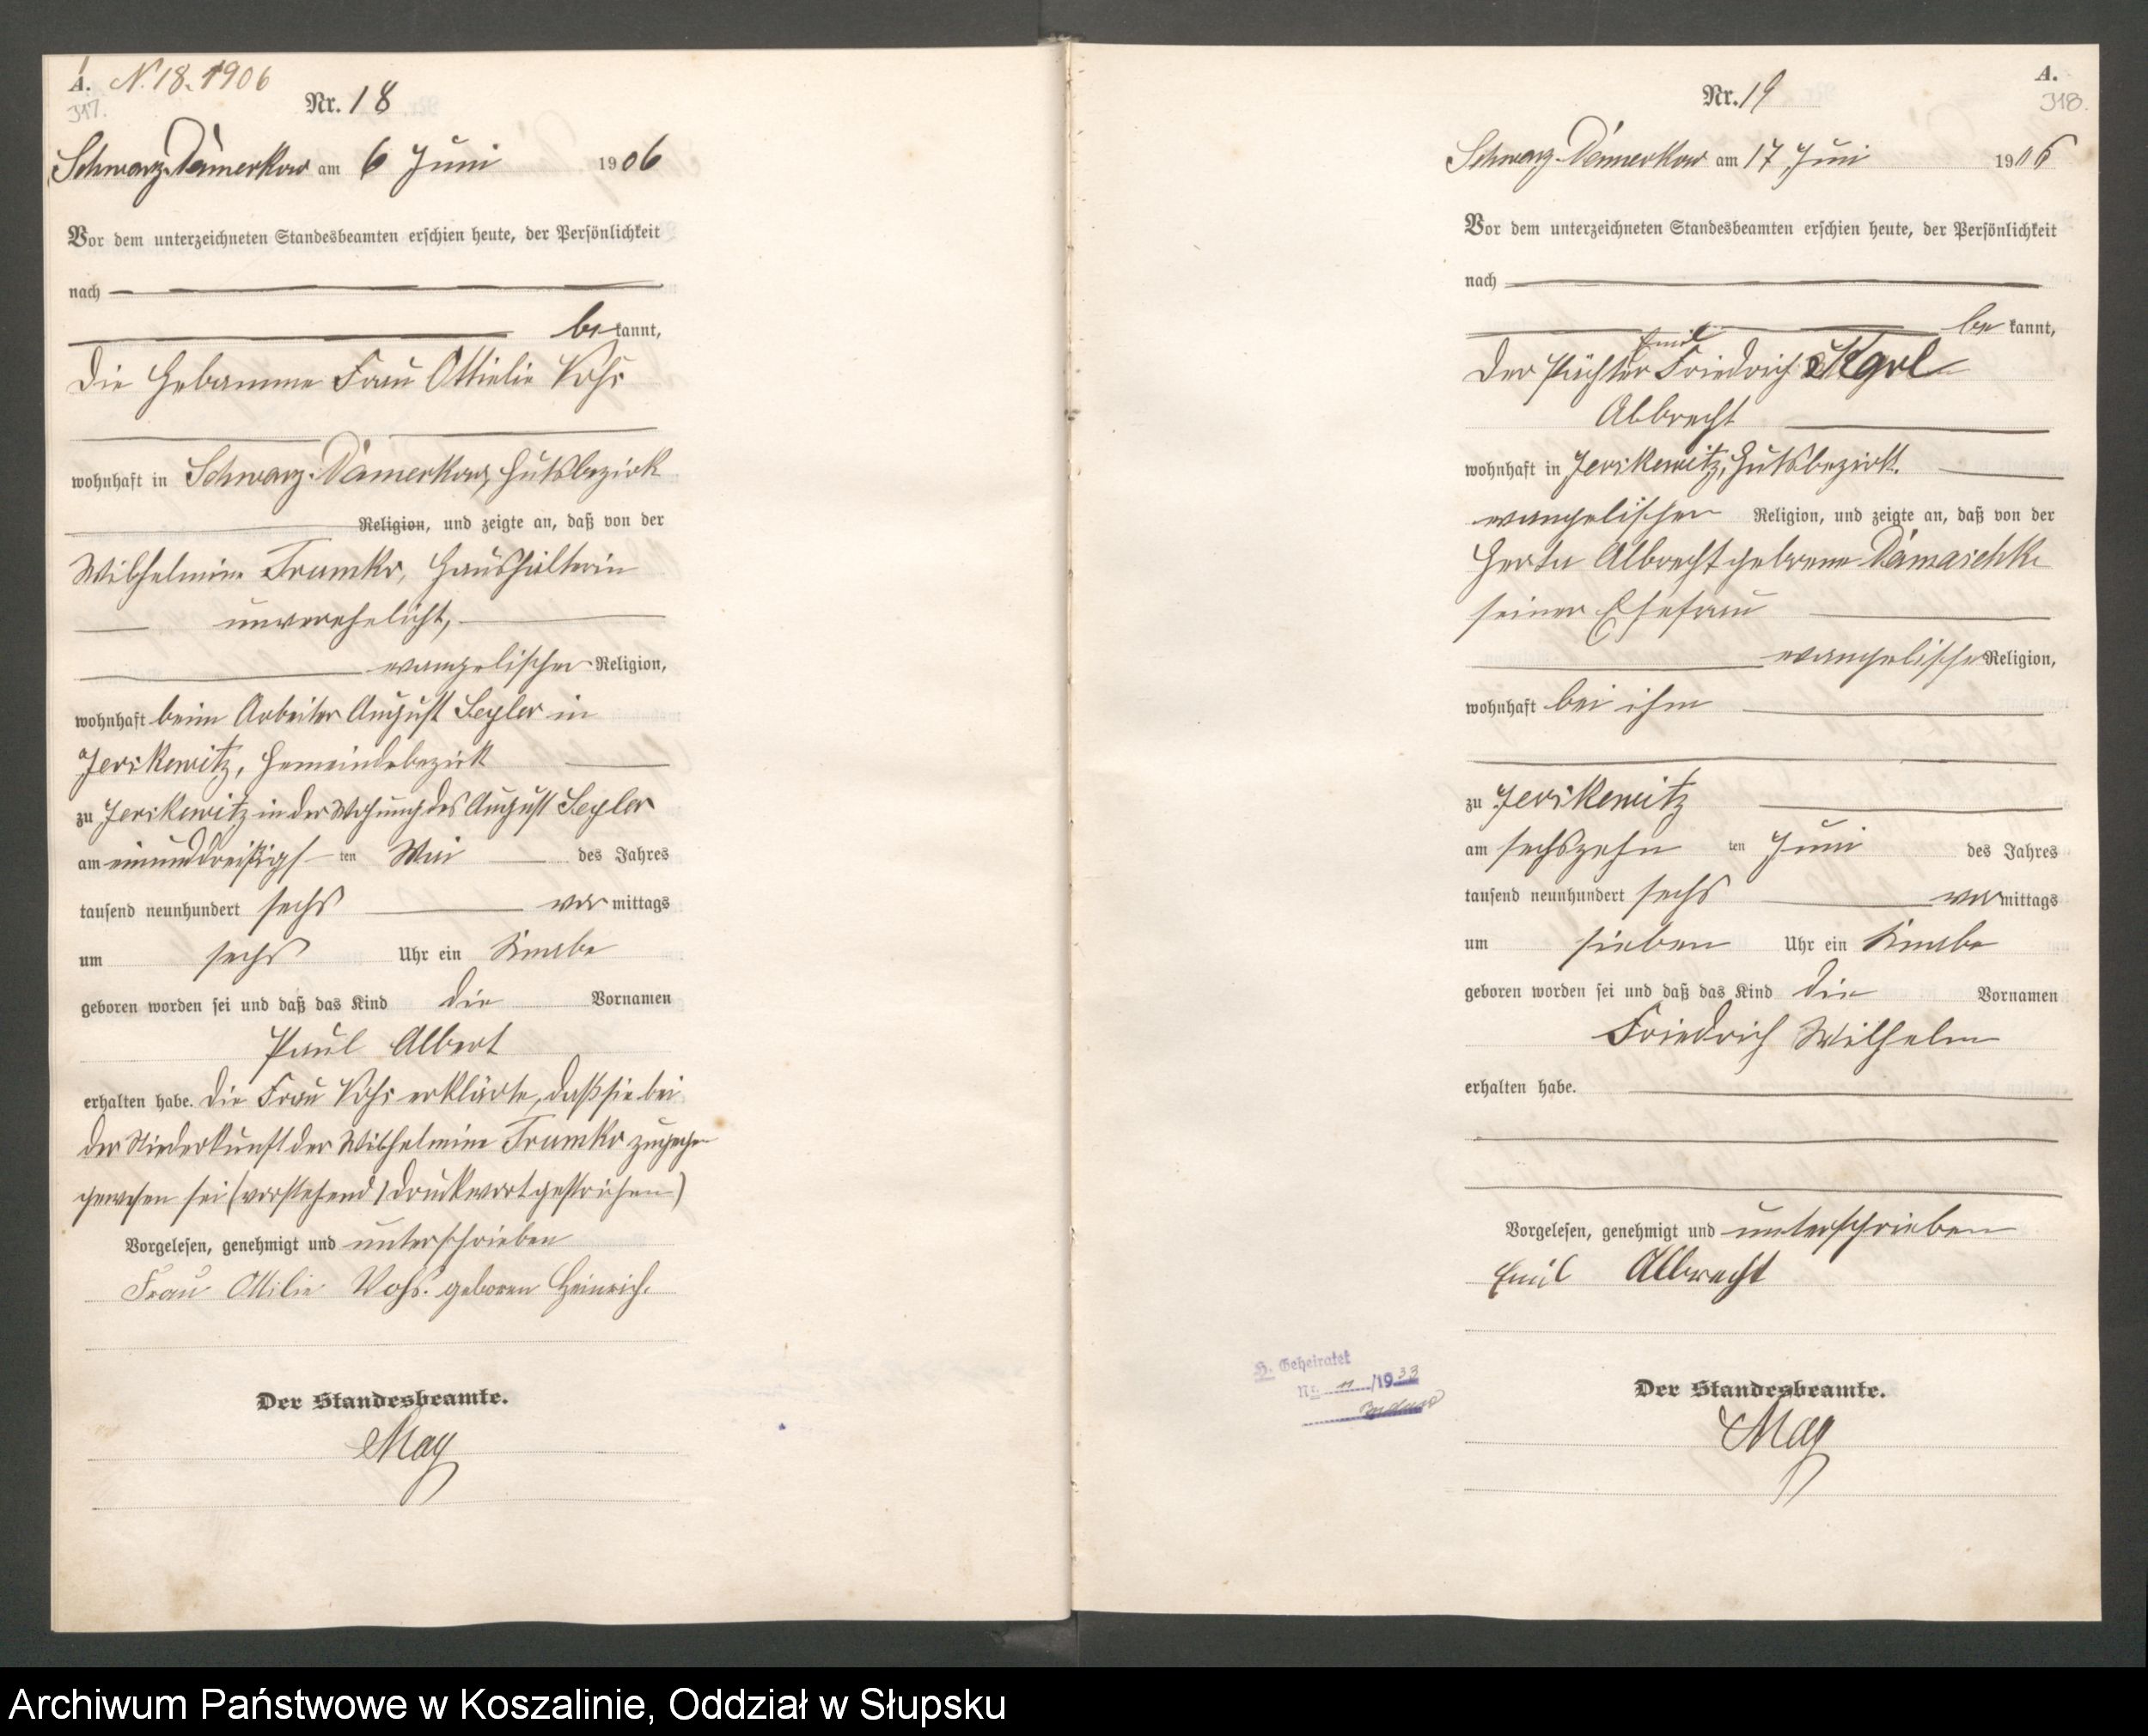 A. N. 18. 1906
317.
Nr. 18
Schwarz-Damerkow am 6 Juni 1906
Vor dem unterzeichneten Standesbeamten erschien heute, der Persönlichkeit
nach
be kannt,
die Hebamme Frau Ottielie Vohs
wohnhaft in Schwarz-Damerkow, Gutsbezirk
Religion, und zeigte an, daß von der
Wilhelmine Framke, Haushälterin
unverehelicht,
evangelischer Religion,
wohnhaft beim Arbeiter August Segler in
Jerskewitz, Gemeindebezirk
zu Jerskewitz in der Wohnung des August Segler
am einunddreißigs ten Mai des Jahres
tausend neunhundert sechs vor mittags
um sechs Uhr ein Knabe
geboren worden sei und daß das Kind die Vornamen
Paul Albert
erhalten habe. Die Frau Vohs erklärte, daß sie bei
der Niederkunft der Wilhelmine Framke zugegen
gewesen sei (vorstehend 1 Druckwort gestrichen)
Vorgelesen, genehmigt und unterschrieben
Frau Ottilie Vohs. geboren Heinrich.
Der Standesbeamte.
May
A.
318.
Nr. 19
Schwarz-Damerkow am 17 Juni 1906
Vor dem unterzeichneten Standesbeamten erschien heute, der Persönlichkeit
nach
be kannt,
Emil
der Pächter Friedrich Karl
Albrecht
wohnhaft in Jerskewitz, Gutsbezirk.
evangelischer Religion, und zeigte an, daß von der
Herta Albrecht geborene Damaschke
seiner Ehefrau
evangelischer Religion,
wohnhaft bei ihm
zu Jerskewitz
am sechszehn ten Juni des Jahres
tausend neunhundert sechs vor mittags
um sieben Uhr ein Knabe
geboren worden sei und daß das Kind die Vornamen
Friedrich Wilhelm
erhalten habe.
Vorgelesen, genehmigt und unterschrieben
Emil Albrecht
H. Geheiratet
No /1933
Der Standesbeamte.
May
Archiwum Państwowe w Koszalinie, Oddział w Słupsku